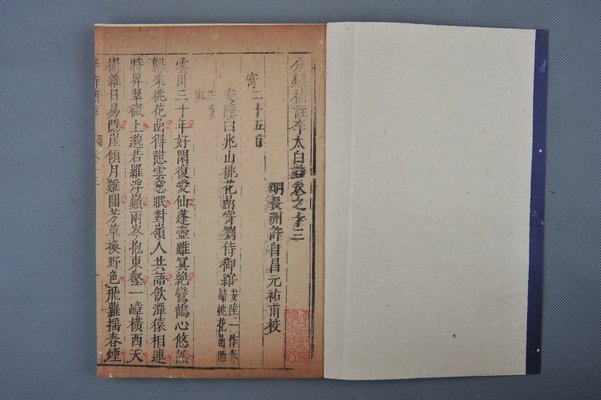 分類補註李太白詩卷之十三
明長洲許自昌元祐甫校
寄二十五首
安陸白兆山桃花巖寄劉侍御綰 安陸一作春歸桃花巖貽
雲臥三十年好閑復愛仙蓬壺雖冥絕鸞鶴心悠然
歸來桃花巖得憩雲窓眠對嶺人共語飲潭猿相連
時昇翠微上邈若羅浮巔兩岑抱東壑一嶂橫西天
樹雜日易隱崖傾月難圓芳草換野色飛蘿搖春煙